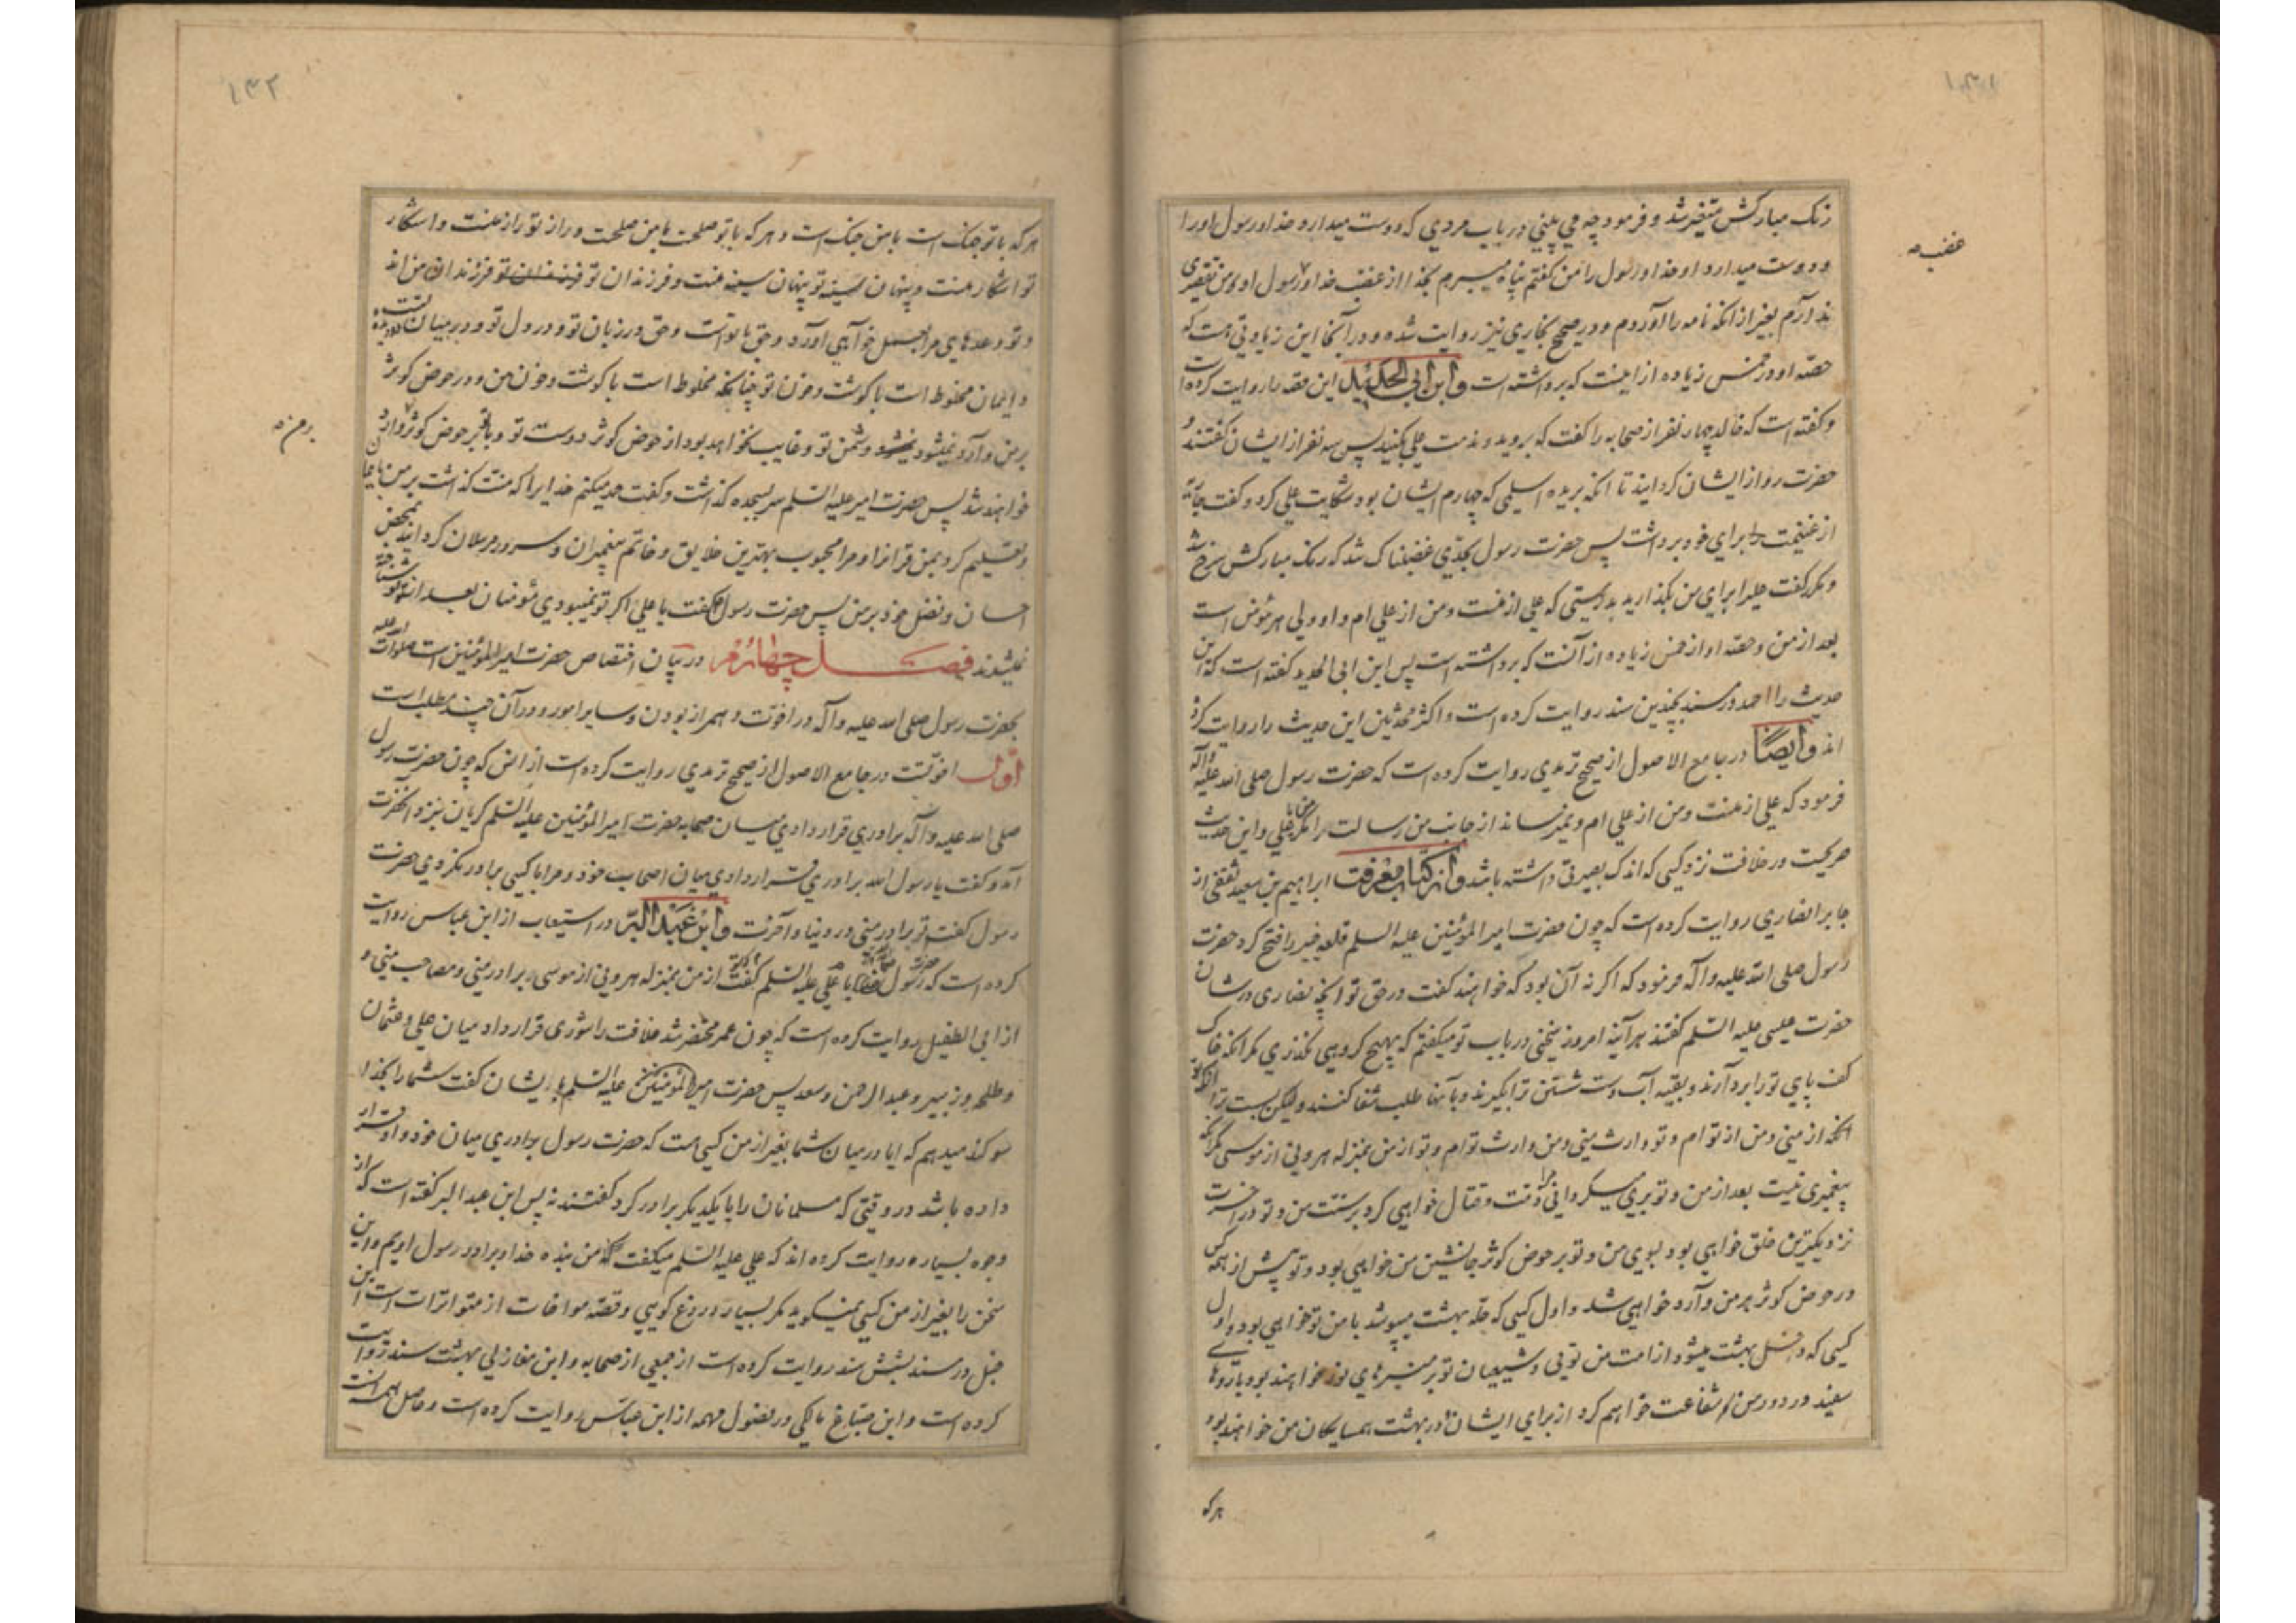 ۱۴۱
رنک مبارکش متغیر شد و فرمود چه می بینی در باب مردی که دوست میدارد خدا و رسول او را
غضب
و دوست میدارد او خدا و رسول را من کفتم پناه میبرم بخدا از غضب خدا و رسول او و من تقصیری
ندارم بغیر از انکه نامه را آوردم و در صحیح بخاری نیز روایت شده و در آنجا این زیادتی هست که
حصه او در خمس زیاده از اینست که برداشته است و ابن ابی الحدید این قصه را روایت کرده است
و کفته است که خالد چهار نفر از صحابه را کفت که بروید و مذمت علی بکنید پس سه نفر از ایشان کفتند و
حضرت رو از ایشان کردانید تا انکه بریده اسلمی که چهارم ایشان بود شکایت علی کرد و کفت جاریه
از غنیمت را برای خود برداشت پس حضرت رسول بحدی غضبناک شد که رنک مبارکش سرخ شد
و مکرر کفت علی را برای من بکذارید بدرستی که علی از منست و من از علی ام و او ولی هر مؤمن است
بعد از من و حصه او از خمس زیاده از آنست که برداشته است پس ابن ابی الحدید کفته است که این
حدیث را احمد در مسند بچندین سند روایت کرده است و اکثر محدثین این حدیث را روایت کرده
اند و ایضًا در جامع الاصول از صحیح ترمدی روایت کرده است که حضرت رسول صلی الله علیه و آله
فرمود که علی از منست و من از علی ام و نمیرساند از جانب من رسالت را مکر من یا علی و این حدیث
صریحست در خلافت نزد کسی که اندک بصیرتی داشته باشد و از کتاب معرفت ابراهیم بن سعید ثقفی از
جابر انصاری روایت کرده است که چون حضرت امیر المؤمنین علیه السلم قلعه خیبر را فتح کرد حضرت
رسول صلی الله علیه و آله فرمود که اکر نه آن بود که خواهند کفت در حق تو انچه نصاری در شان
حضرت عیسی علیه السلم کفتند هر آینه امروز سخنی در باب تو میکفتم که بهیچ کروهی نکذری مکر انکه خاک
کف پای تو را بردارند و بقیه آب دست شستن ترا بکیرند و بآنها طلب شفا کنند و لیکن بست ترا
انکه از منی و من از تو ام و تو وارث منی و من وارث تو ام و تو از من بمنزله هرونی از موسی مکر انکه
پیغمبری نیست بعد از من و تو بری میکردانی ذمت مرا و قتال خواهی کرد بر سنت من و تو در اخرت
نزدیکترین خلق خواهی بود بسوی من و تو بر حوض کوثر جانشین من خواهی بود و تو پیش از همه کس
در حوض کوثر بر من وارد خواهی شد و اول کسی که حلّه بهشت میپوشد با من تو خواهی بود و اول
کسی که داخل بهشت میشود از امت من توئی و شیعیان تو بر منبرهای نور خواهند بود با روهای
سفید در دور من و شفاعت خواهم کرد از برای ایشان و در بهشت همسایکان من خواهند بود
هر که
۱۴۲
هر که با تو جنک است با من جنک است و هر که با تو صلحست با من صلحست و راز تو راز منست و اشکار
تو اشکار منست و پنهان سینه تو پنهان سینه منست و فرزندان تو فرزندان من اند
و تو وعدهای مرا بعمل خواهی آورد و حق با تو است و حق در زبان تو و در دل تو و در میان دو دیده تست
و ایمان مخلوط است با کوشت و خون تو چنانچه مخلوط است با کوشت و خون من و در حوض کوثر
بر من وارد نمیشود دشمن تو و غایب نخواهد بود از حوض کوثر دوست تو و با تو بر حوض کوثر وارد
بر من
خواهند شد پس حضرت امیر علیه السلم سر بسجده کذاشت و کفت حمد میکنم خدایرا که منت کذاشت بر من بایمان
و تعلیم کرد بمن قران را و مرا محبوب بهترین خلایق و خاتم پیغمبران و سرور مرسلان کردانید بمحض
احسان و تفضل خود بر من پس حضرت رسول کفت یا علی اکر تو نمیبودی مؤمنان بعد از من شناخته
نمیشدند فصل چهارم در بیان اختصاص حضرت امیر المؤمنین است صلوات الله علیه
بحضرت رسول صلی الله علیه و آله در اخوت و همراز بودن و سایر امور و در آن چند مطلب است
اوّل اخوتست در جامع الاصول از صحیح ترمدی روایت کرده است از انس که چون حضرت رسول
صلی الله علیه و آله برادری قرار داد در میان صحابه حضرت امیر المؤمنین علیه السلم کریان بنزد آنحضرت
آمد و کفت یا رسول الله برادری قرار دادی میان اصحاب خود و مرا با کسی برادر نکردی حضرت
رسول کفت تو برادر منی در دنیا و آخرت و ابن عبد البرّ در استیعاب از ابن عباس روایت
کرده است که حضرت رسول با علی علیه السلم کفت که تو از من بمنزله هرونی از موسی برادر منی و مصاحب منی و
از ابی الطفیل روایت کرده است که چون عمر محتضر شد خلافت را شوری قرار داد میان علی و عثمان
و طلحه و زبیر و عبد الرحمن و سعد پس حضرت امیر المؤمنین علیه السلم با ایشان کفت شما را بخدا
سوکند میدهم که ایا در میان شما بغیر از من کسی هست که حضرت رسول برادری میان خود و او قرار
داده باشد در وقتی که مسلمانان را با یکدیکر برادر کرد کفتند نه پس ابن عبد البر کفته است که از
وجوه بسیار روایت کرده اند که علی علیه السلم میکفت که من بنده خدا و برادر رسول اویم و این
سخن را بغیر از من کسی نمیکوید مکر بسیار دروغ کویی و قصه مواخات از متواترات است ابن
حنبل در مسند بشش سند روایت کرده است از جمعی از صحابه و ابن مغازلی بهشت سند روایت
کرده است و ابن صبّاغ مالکی در فصول مهمه از ابن عباس روایت کرده است و حاصل همه انست